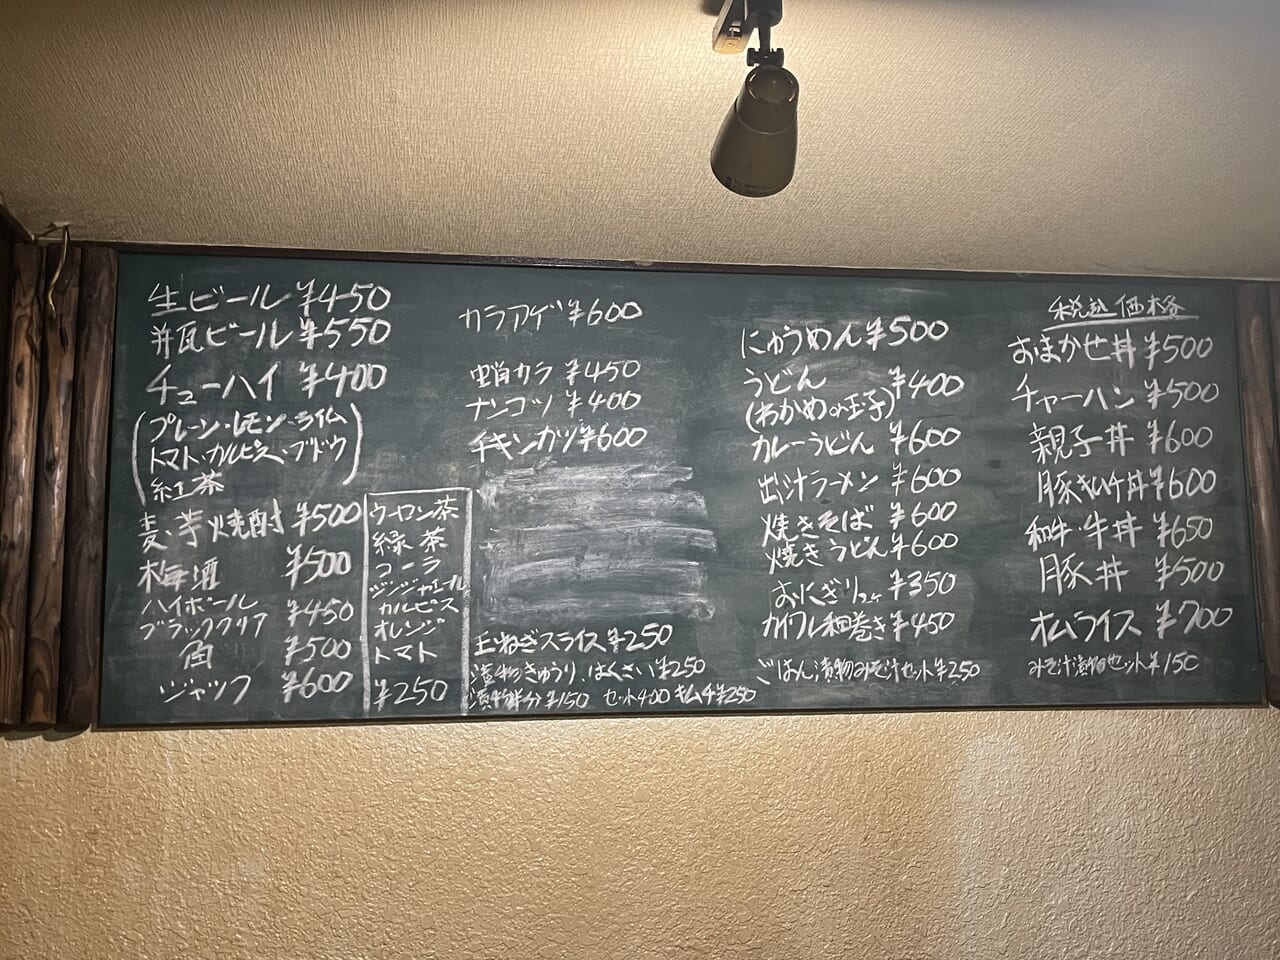 生ビール ¥450
井瓦ビール ¥550
チューハイ ¥400
(プレーン・レモン・ライム
トマト・カルピス・ブドウ)
紅茶
麦・芋焼酎 ¥500
梅酒 ¥500
ハイボール
ブラッククリア ¥450
角 ¥500
ジャック ¥600
ウーロン茶
緑茶
コーラ
ジンジャエール
カルピス
オレンジ
トマト
¥250
カラアゲ ¥600
蛸カラ ¥450
ナンコツ ¥400
チキンカツ ¥600
玉ねぎスライス ¥250
漬物きゅうり、はくさい ¥250
漬物半分 ¥150 セット400 キムチ¥250
にゅうめん ¥500
うどん ¥400
(わかめor玉子)
カレーうどん ¥600
出汁ラーメン ¥600
焼きそば ¥600
焼きうどん ¥600
おにぎり2ヶ ¥350
カイワレ細巻き ¥450
ごはん漬物みそ汁セット¥250
税込価格
おまかせ丼 ¥500
チャーハン ¥500
親子丼 ¥600
豚キムチ丼 ¥600
和牛・牛丼 ¥650
豚丼 ¥500
オムライス ¥700
みそ汁漬物セット¥150